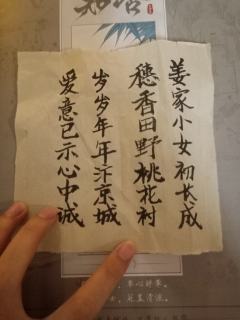 姜家小女初长成
穗香田野桃花衬
岁岁年年汴京城
爱意已示心中诚